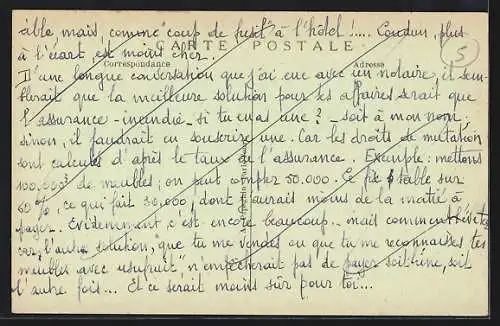 able, mais, comme "coup de fusil" à l'hôtel !.... Coudun, plus
à l'écart, est moins cher.
CARTE POSTALE
5
Correspondance
Adresse
D'une longue conversation que j'ai eue avec un notaire, il sem-
blerait que la meilleure solution pour tes affaires serait que
l'assurance-incendie - si tu en as une ? - soit à mon nom,
sinon, il faudrait en souscrire une. Car les droits de mutation
sont calculés d'après le taux de l'assurance. Exemple : mettons
100.000 de meubles ; on peut compter 50.000. Le fisc table sur
60%, ce qui fait 30,000, dont j'aurais moins de la moitié à
payer. Evidemment c'est encore beaucoup.. mais comment
car, l'autre solution, "que tu me vendes ou que tu me reconnaisses tes
meubles avec usufruit" n'empêcherait pas de payer soit une, soit
l'autre fois... Et ce serait moins sûr pour toi...